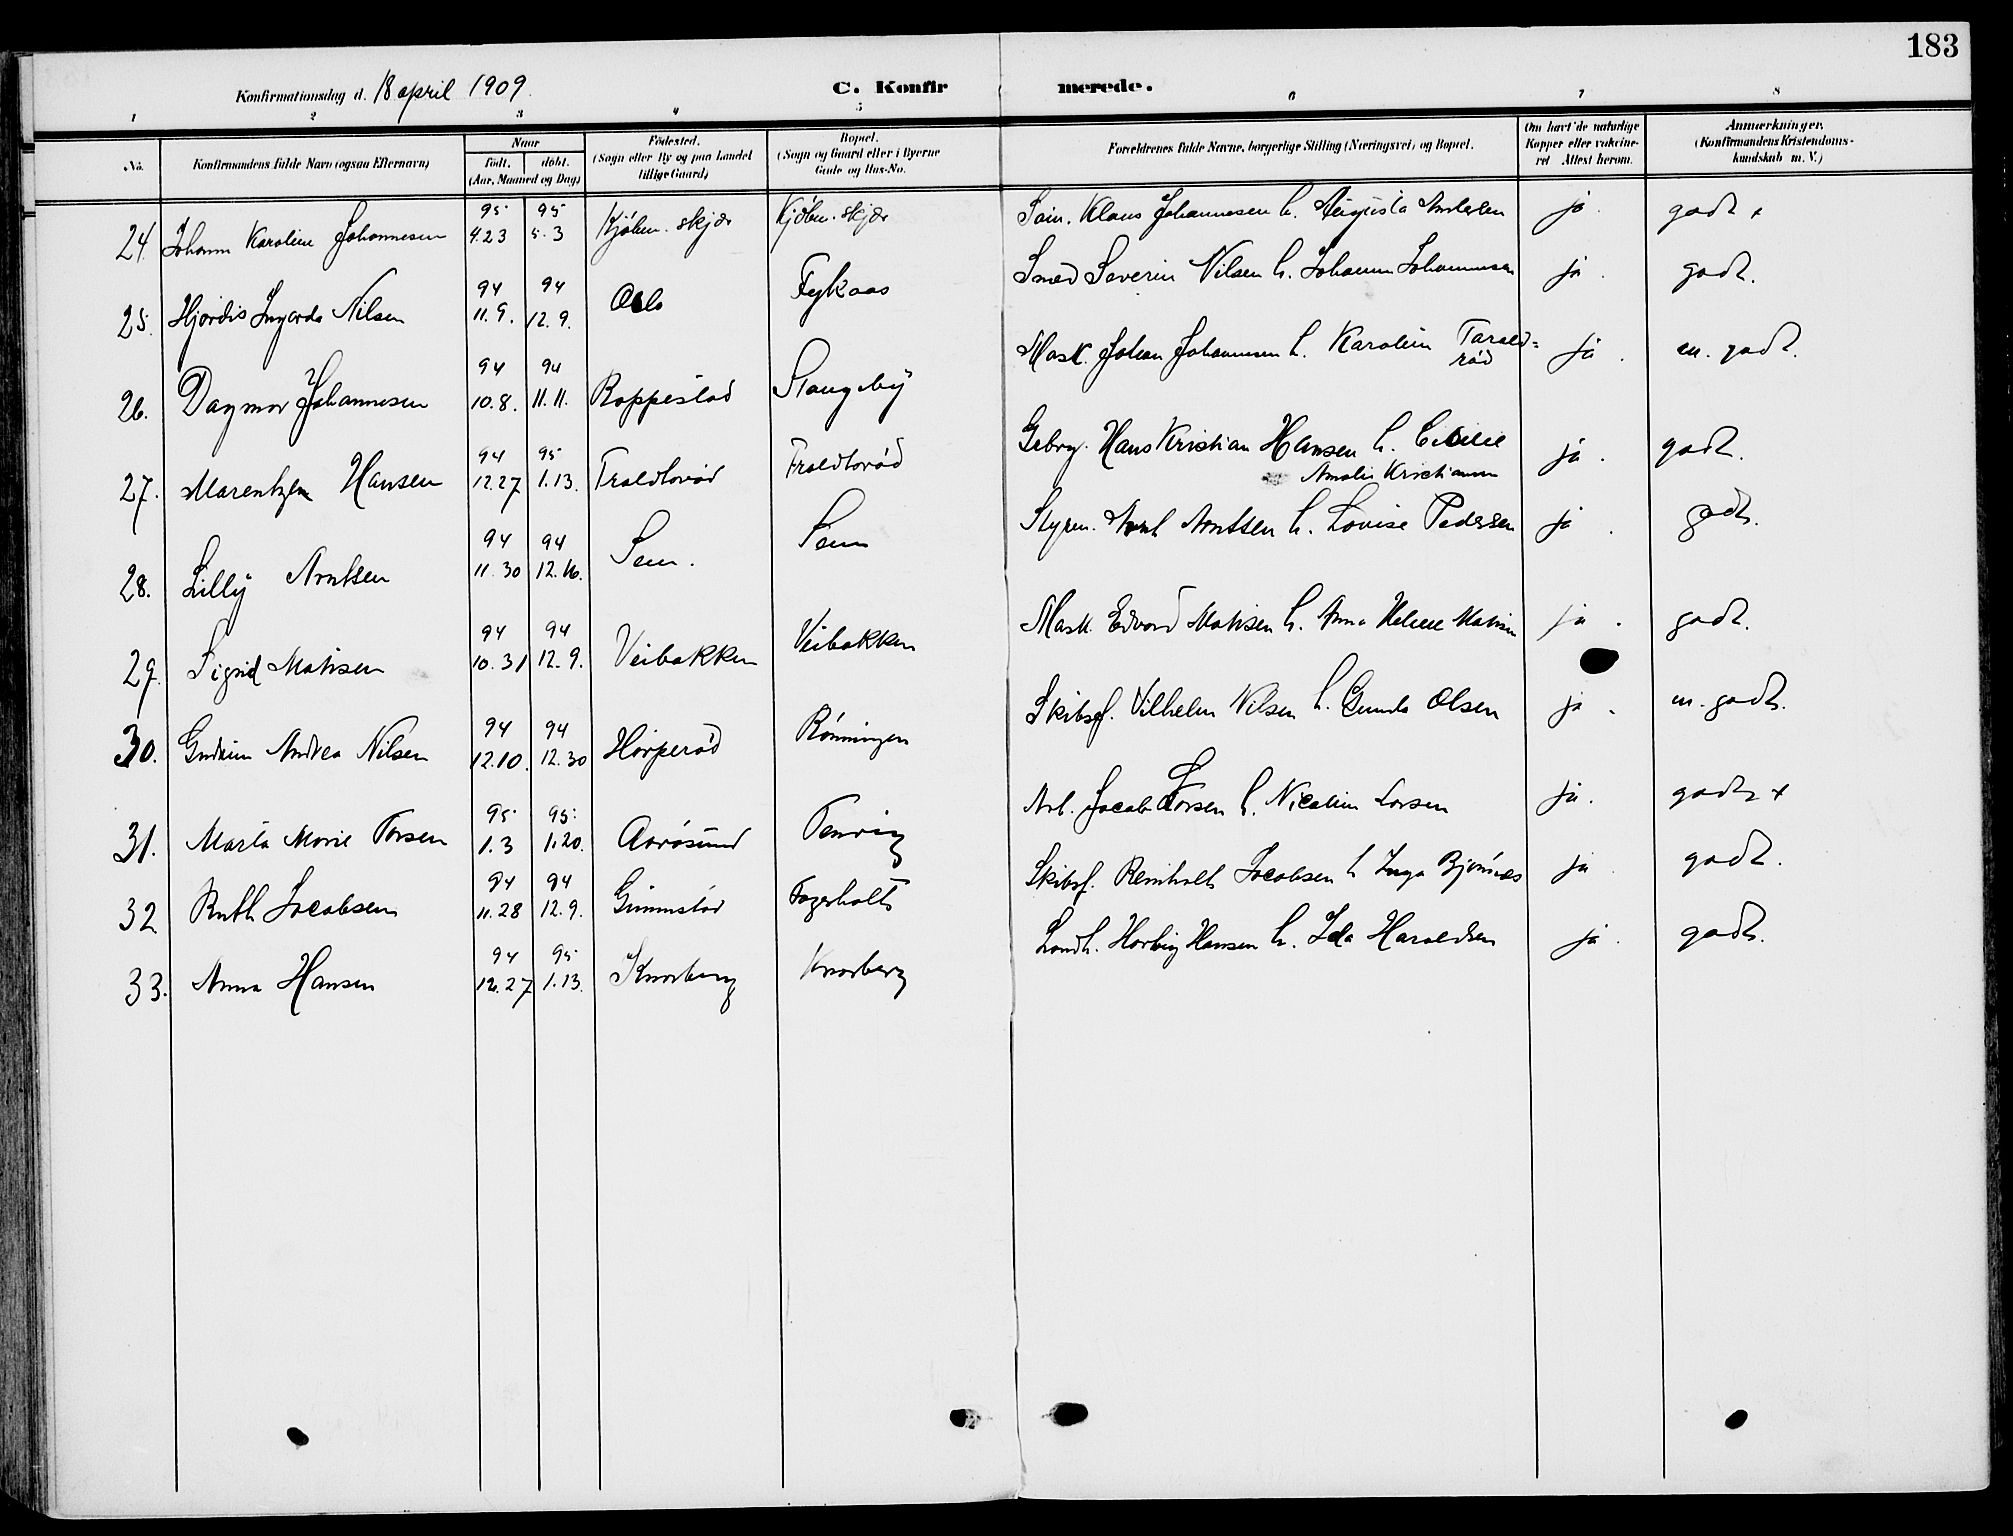 183
Konfirmationsdag d. 18 april 1909
C. Konfir merede.
1 2 3 4 5 6 7 8
No. Konfirmandens fulde Navn (ogsaa Efternavn) Naar født, døbt. (Aar, Maaned og Dag) Fødested. (Sogn eller By og paa Landet tillige Gaard) Bopæl. (Sogn og Gaard eller i Byerne Gade og Hus-No. Forældrenes fulde Navne, borgerlige Stilling (Næringsvei) og Bopæl. Om havt de naturlige Kopper eller vakcineret Attest herom. Anmærkninger. (Konfirmandens Kristendomskundskab m. V.)
24. Johanne Karoline Johannesen 95 4.23 95 5.3 Kjøben. skjær Kjöben. skjær Klaus Johannesen h. Augusta Andersen ja. godt +
25. Hjørdis Ingarda Nilsen 94 11.9. 94 12.9. Oslo Fykaas Smed Severin Nilsen h. Johanne Johannesen ja. godt.
26. Dagmar Johannesen 94 10.8. 94 11.11. Roppestad Stangeby Mask. Johan Johannesen h. Karoline Taraldrød ja. m. godt.
27. Marentzen Hansen 94 12.27 95 1.13. Hans Kristian Hansen h. Cicilie Amalie Kristiansen ja. godt.
28. Lilly Arntsen 94 11.30 94 12.16. Sem. Sem Styrm. Arnt Arntsen h. Lovise Pedersen ja. godt.
29. Sigrid Matisen 94 10.31 94 12.9. Veibakken Veibakken Mask. Edvard Matisen h. Anna Helene Matisen ja. godt.
30. Gudrun Andrea Nilsen 94 12.10. 94 12.30 Hårperød Rønningen Skibsf. Vilhelm Nilsen h. Gunda Olsen ja. m. godt.
31. Marta Marie Torsen 95 1.3 95 1.20. Aarøsund Arb. Jacob h. Nicoline Larsen ja. godt +
32 Ruth Jacobsen 94 11.28 94 12.9. Gimmestad Fagerholt Skibsf. Reinholt Jacobsen h Inga Bjønnæs ja godt.
33. Anna Hansen 94 12.27 95 1.13. Knarberg Knarberg Hansen h. Ida Haraldsen ja. godt.